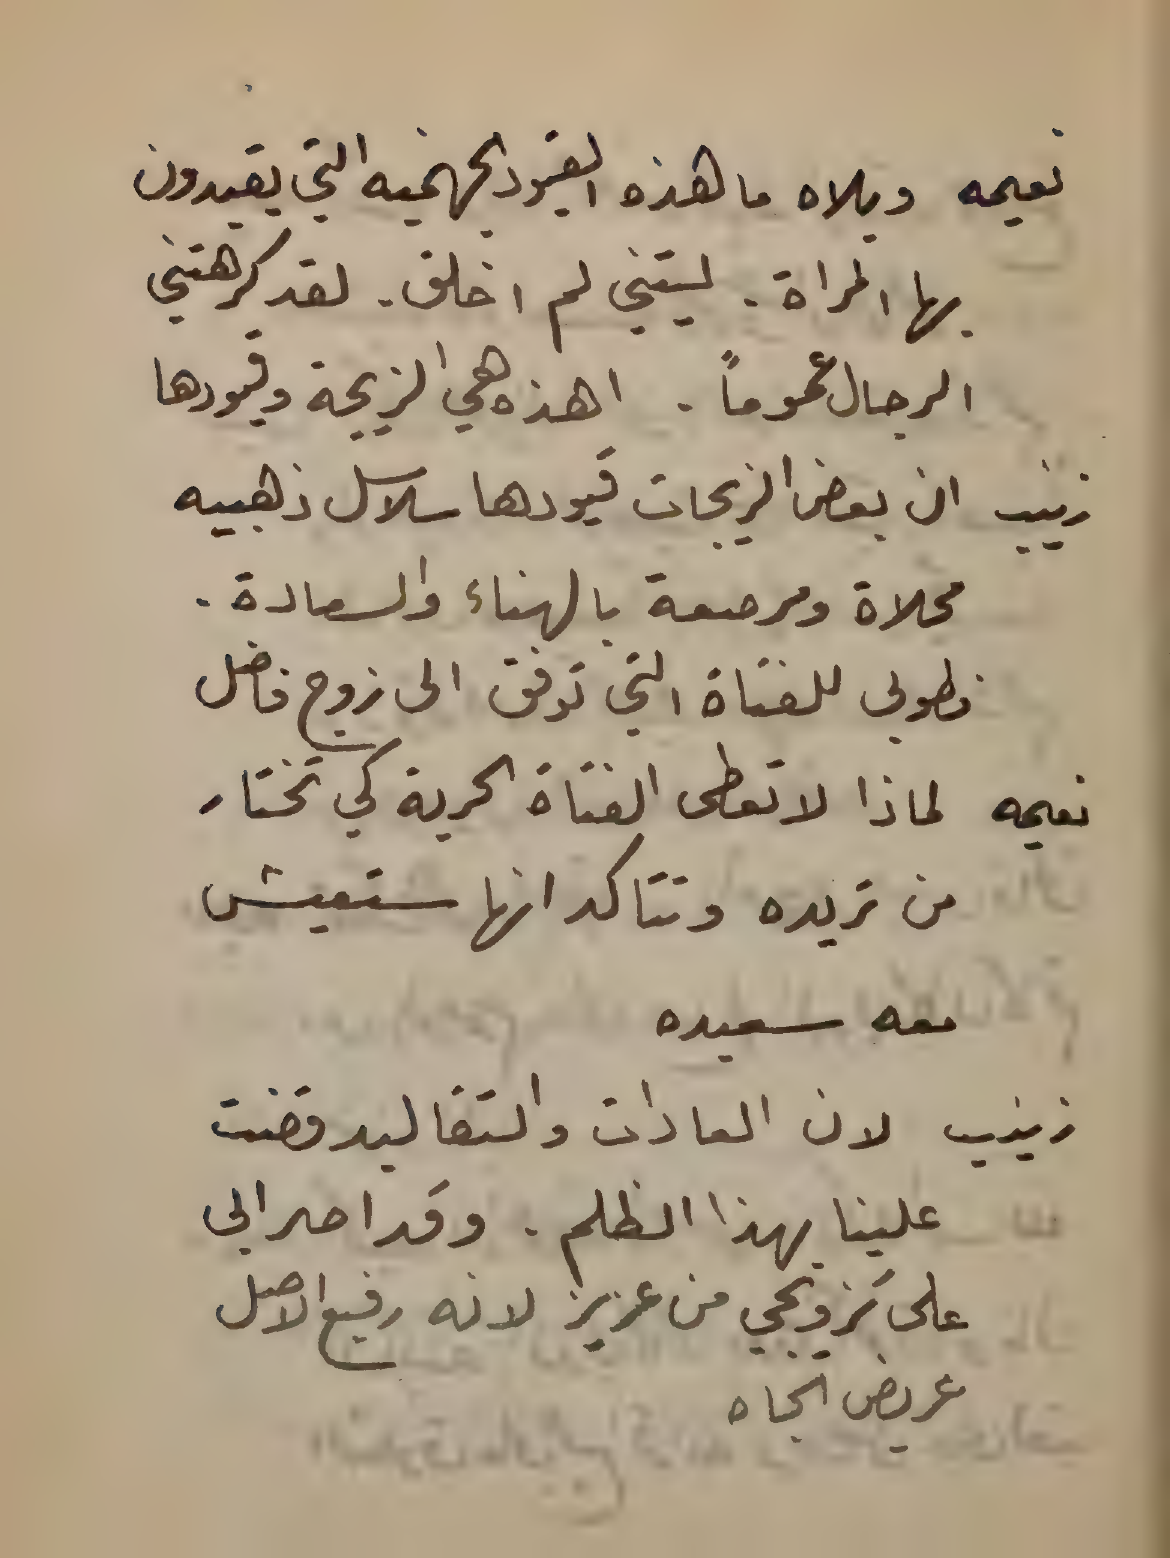 نعيمه ويلاه ما هذه القيود الجهنميه التي يقيدون
بها المراة . ليتني لم اخلق . لقد كرهتني
الرجال عموماً . اهذه هي الزيجة وقيودها
زينب ان بعض الزيجات قيودها سلاسل ذهبيه
محلاة ومرصعة بالهناء والسعادة .
فطوبى للفتاة التي توفق الى زوج فاضل
نعيمه لماذا لا تعطى الفتاة الحرية كي تختار
من تريده وتتاكد انها ستعيش
معه سعيده
زينب لان العادات والتقاليد قضت
علينا بهذا الظلم . وقد اصر ابي
على تزويجي من عزيز لانه رفيع الاصل
عريض الجاه